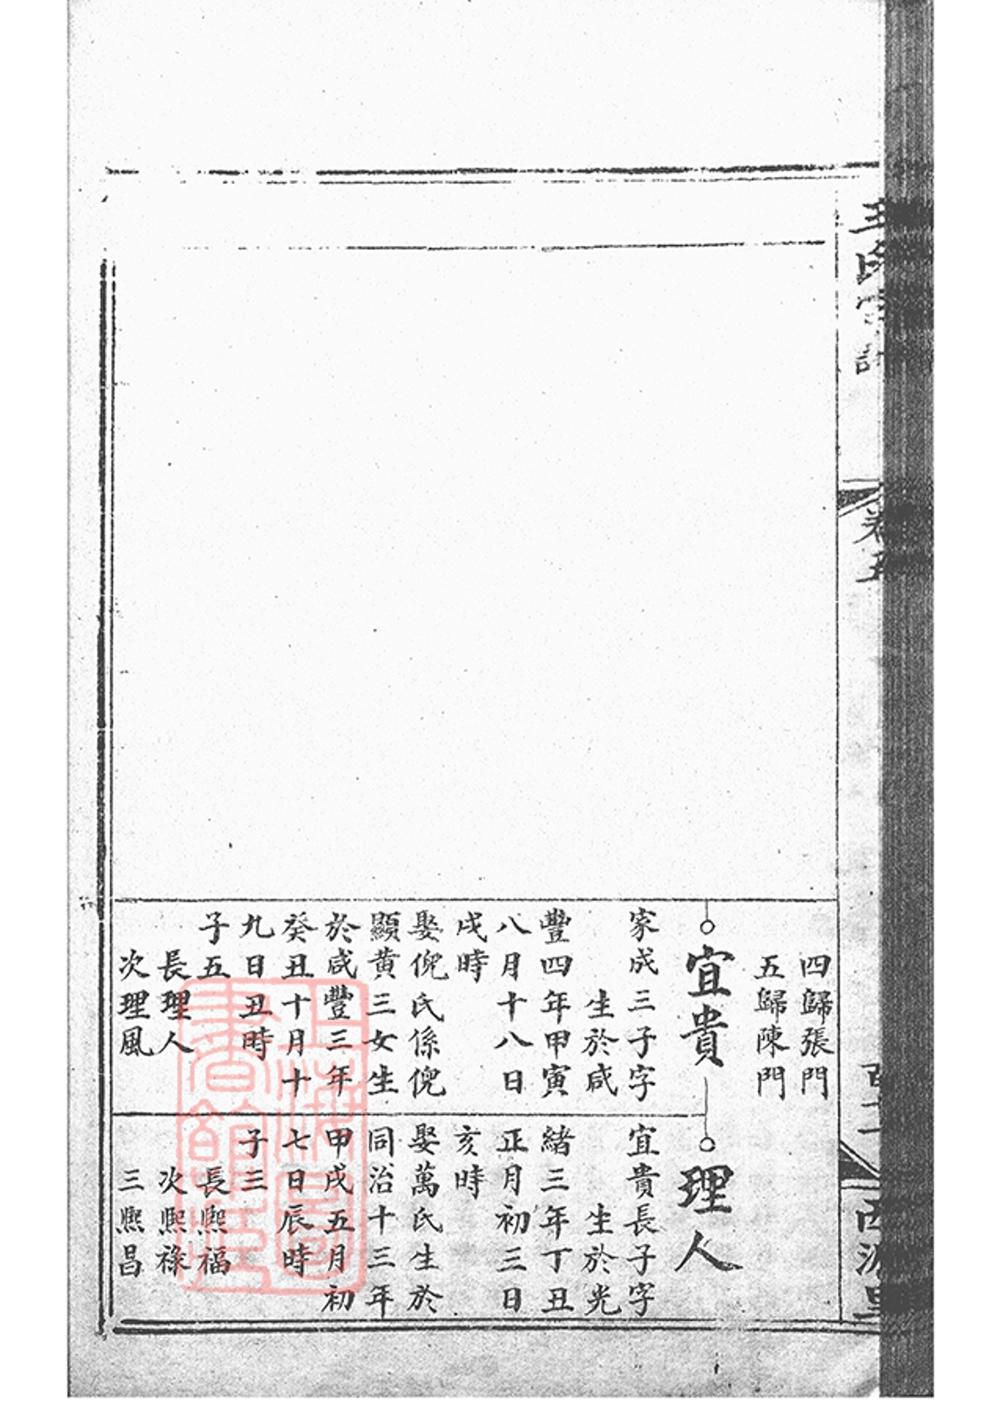 王氏宗譜
卷五
四歸張門
五歸陳門
宜貴
家成三子字
生於咸
豐四年甲寅
八月十八日
戌時
娶倪氏係倪
顯黃三女生
於咸豐三年
癸丑十月十
九日丑時
子五
長理人
次理風
理人
宜貴長子字
生於光
緒三年丁丑
正月初三日
亥時
娶萬氏生於
同治十三年
甲戌五月初
七日辰時
子三
長熙福
次熙祿
三熙昌
上海圖
書館藏